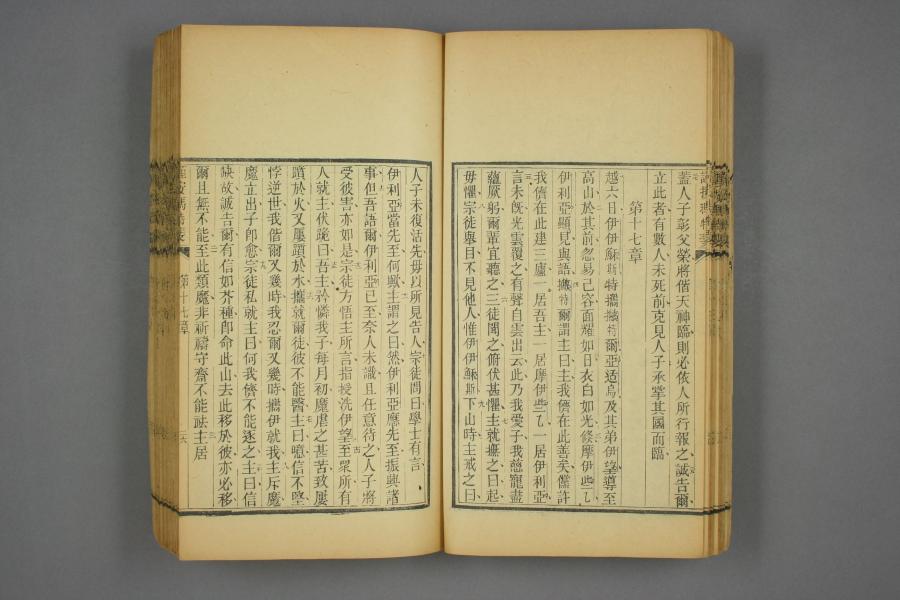 蓋人子彰父榮將偕天神臨則必依人所行報之誠告爾
立此者有數人未死前克見人子承掌其國而臨
第十七章
越六日伊伊穌斯特攜撒特爾亞适烏及其弟伊望導至
高山於其前忽易己容面耀如日衣白如光倐摩伊些乙
伊利亞顯見與語撒特爾謂主曰主我儕在此善矣儻許
我儕在此建三廬一居吾主一居摩伊些乙一居伊利亞
言未旣光雲覆之有聲自雲出云此乃我愛子我慈寵盡
蘊厥躬爾輩宜聽之三徒聞之俯伏甚懼主就撫之曰起
毋懼宗徒舉目不見他人惟伊伊穌斯下山時主戒之曰
人子未復活先毋以所見告人宗徒問曰學士有言
伊利亞當先至何歟主謂之曰然伊利亞應先至振興諸
事但吾語爾伊利亞已至奈人未識且任意待之人子將
受彼害亦如是宗徒方悟主所言指授洗伊望至眾所有
人就主伏跪曰吾主矜憐我子每月初魔虐之甚苦致屢
蹟於火又屢蹟於水攜就爾徒彼不能醫主曰噫信不堅
悖逆世我偕爾又幾時我忍爾又幾時攜伊就我主斥魔
魔立出子卽愈宗徒私就主曰何我儕不能逐之主曰信
缺故誠吿爾有信如芥種卽命此山去此移於彼亦必移
爾且無不能至此類魔非祈禱守齋不能祛主居
第十七章